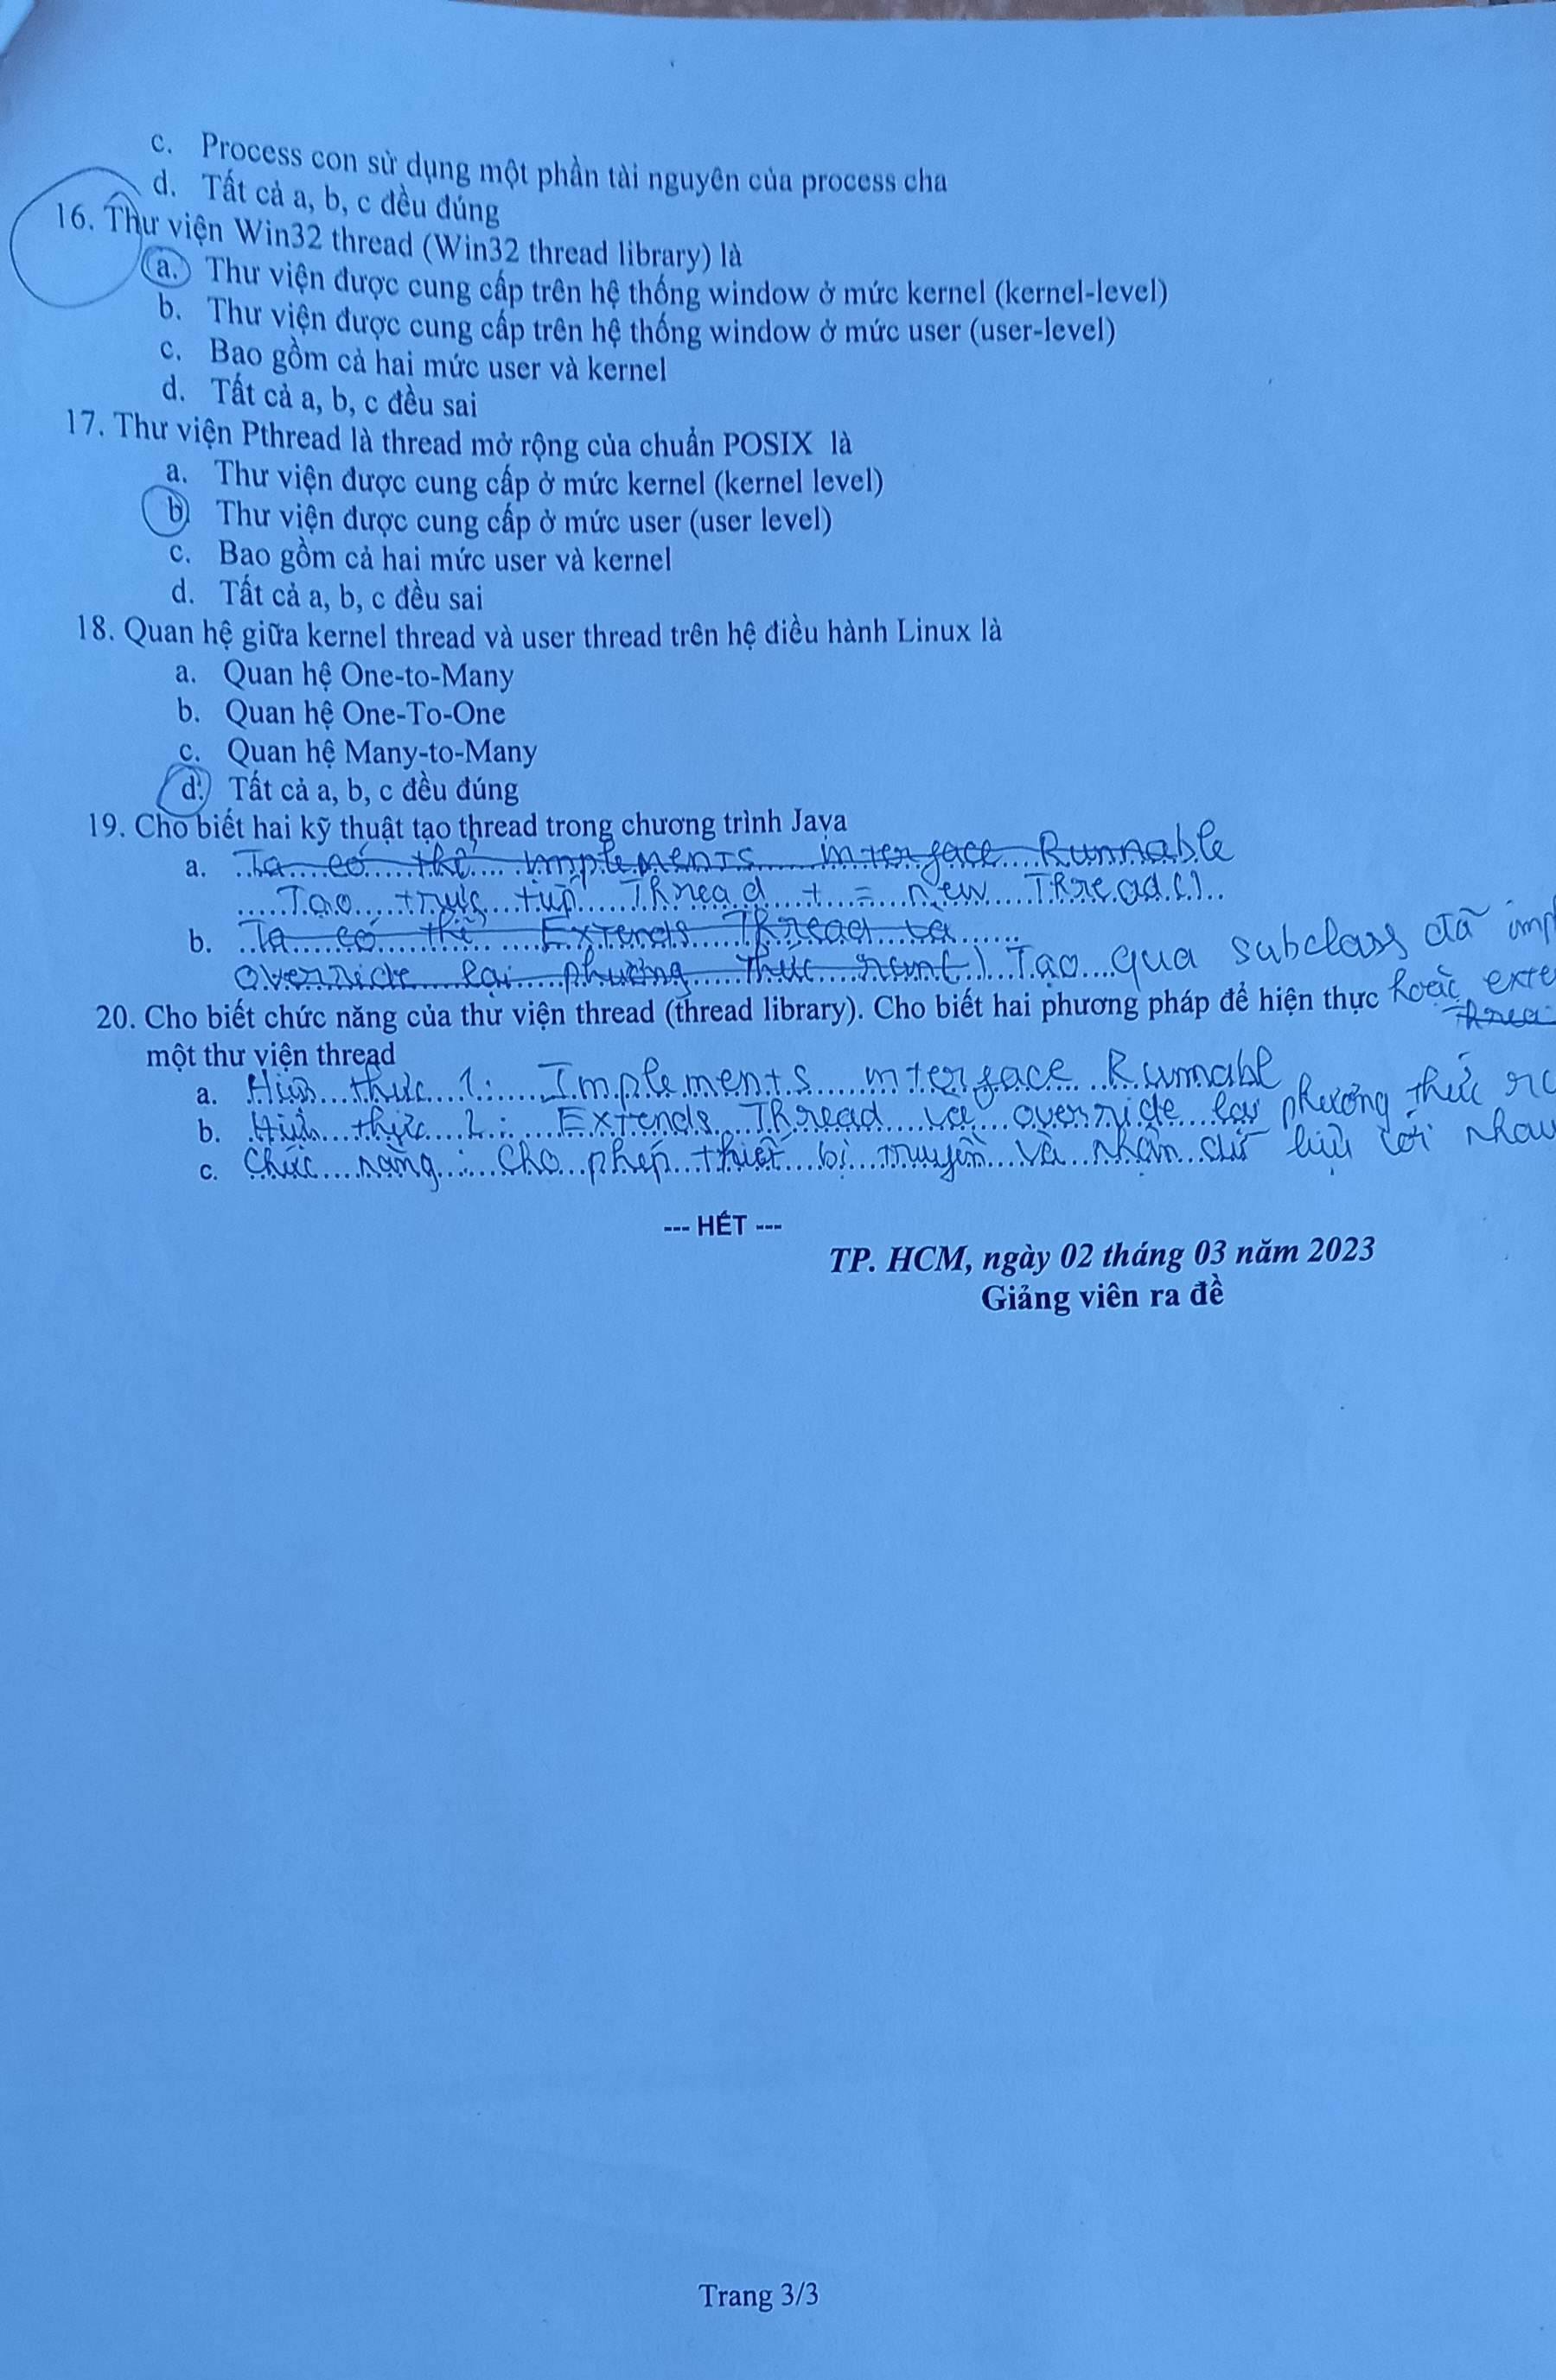 c. Process con sử dụng một phần tài nguyên của process cha
d. Tất cả a, b, c đều đúng
16. Thư viện Win32 thread (Win32 thread library) là
a. Thư viện được cung cấp trên hệ thống window ở mức kernel (kernel-level)
b. Thư viện được cung cấp trên hệ thống window ở mức user (user-level)
c. Bao gồm cả hai mức user và kernel
d. Tất cả a, b, c đều sai
17. Thư viện Pthread là thread mở rộng của chuẩn POSIX là
a. Thư viện được cung cấp ở mức kernel (kernel level)
b. Thư viện được cung cấp ở mức user (user level)
c. Bao gồm cả hai mức user và kernel
d. Tất cả a, b, c đều sai
18. Quan hệ giữa kernel thread và user thread trên hệ điều hành Linux là
a. Quan hệ One-to-Many
b. Quan hệ One-To-One
c. Quan hệ Many-to-Many
d. Tất cả a, b, c đều đúng
19. Cho biết hai kỹ thuật tạo thread trong chương trình Java
a. Ta có thể implements interface Runnable
Tạo trực tiếp Thread t = new Thread()
b. Ta có thể Extends Thread và
Override lại phương thức run() Tạo qua subclass đã imp
hoặc exte
20. Cho biết chức năng của thư viện thread (thread library). Cho biết hai phương pháp để hiện thực
một thư viện thread
a. Hiện thực 1: Implements interface Runnabl
b. Hiện thực 2: Extends Thread và override lại phương thức
c. Chức năng: Cho phép thiết bị truyền và nhận dữ liệu với nhau
--- HẾT ---
TP. HCM, ngày 02 tháng 03 năm 2023
Giảng viên ra đề
Trang 3/3